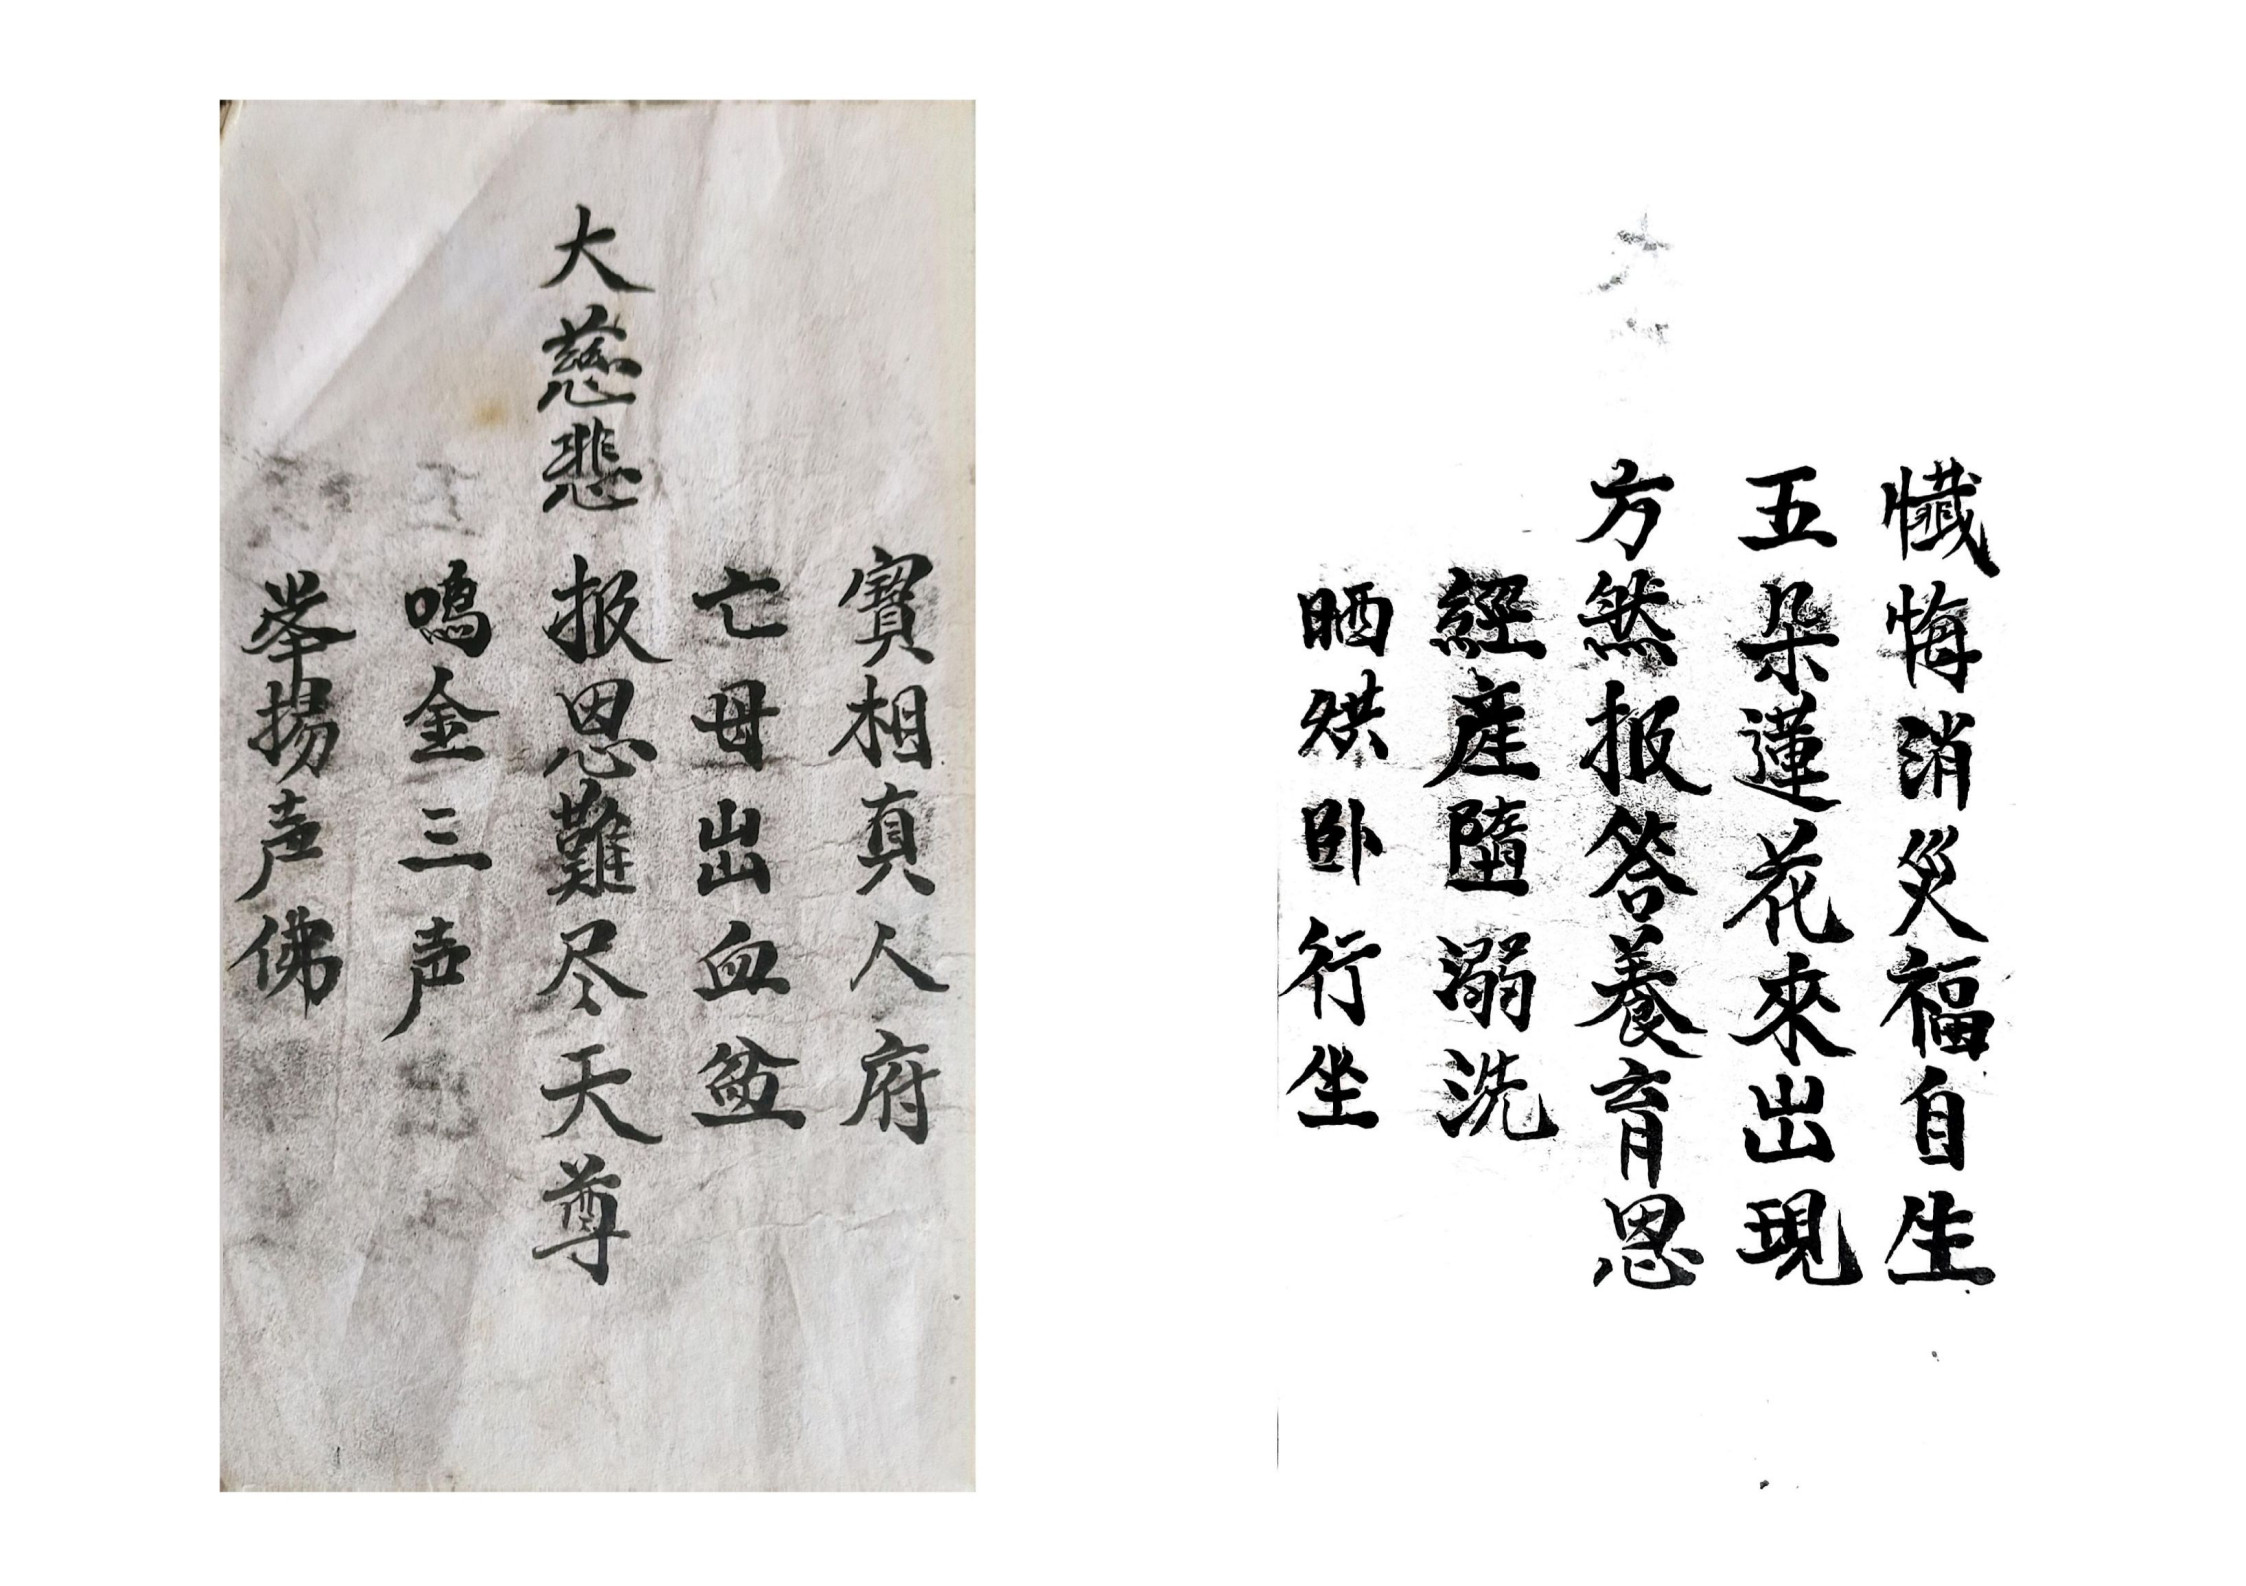 懺悔消災福自生
五朵蓮花來出現
方然报答養育恩
經産墮溺洗
晒烘卧行坐
寳相真人府
亡母出血盆
大慈悲报恩難尽天尊
鳴金三声
举揚声佛